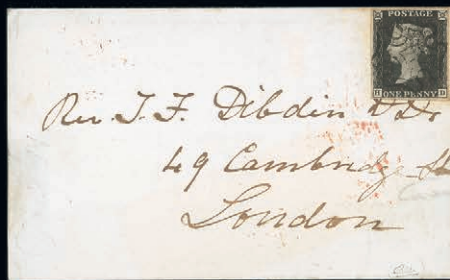 POSTAGE
ONE PENNY
Rev. T. F. Dibdin D.D.
49 Cambridge St
London